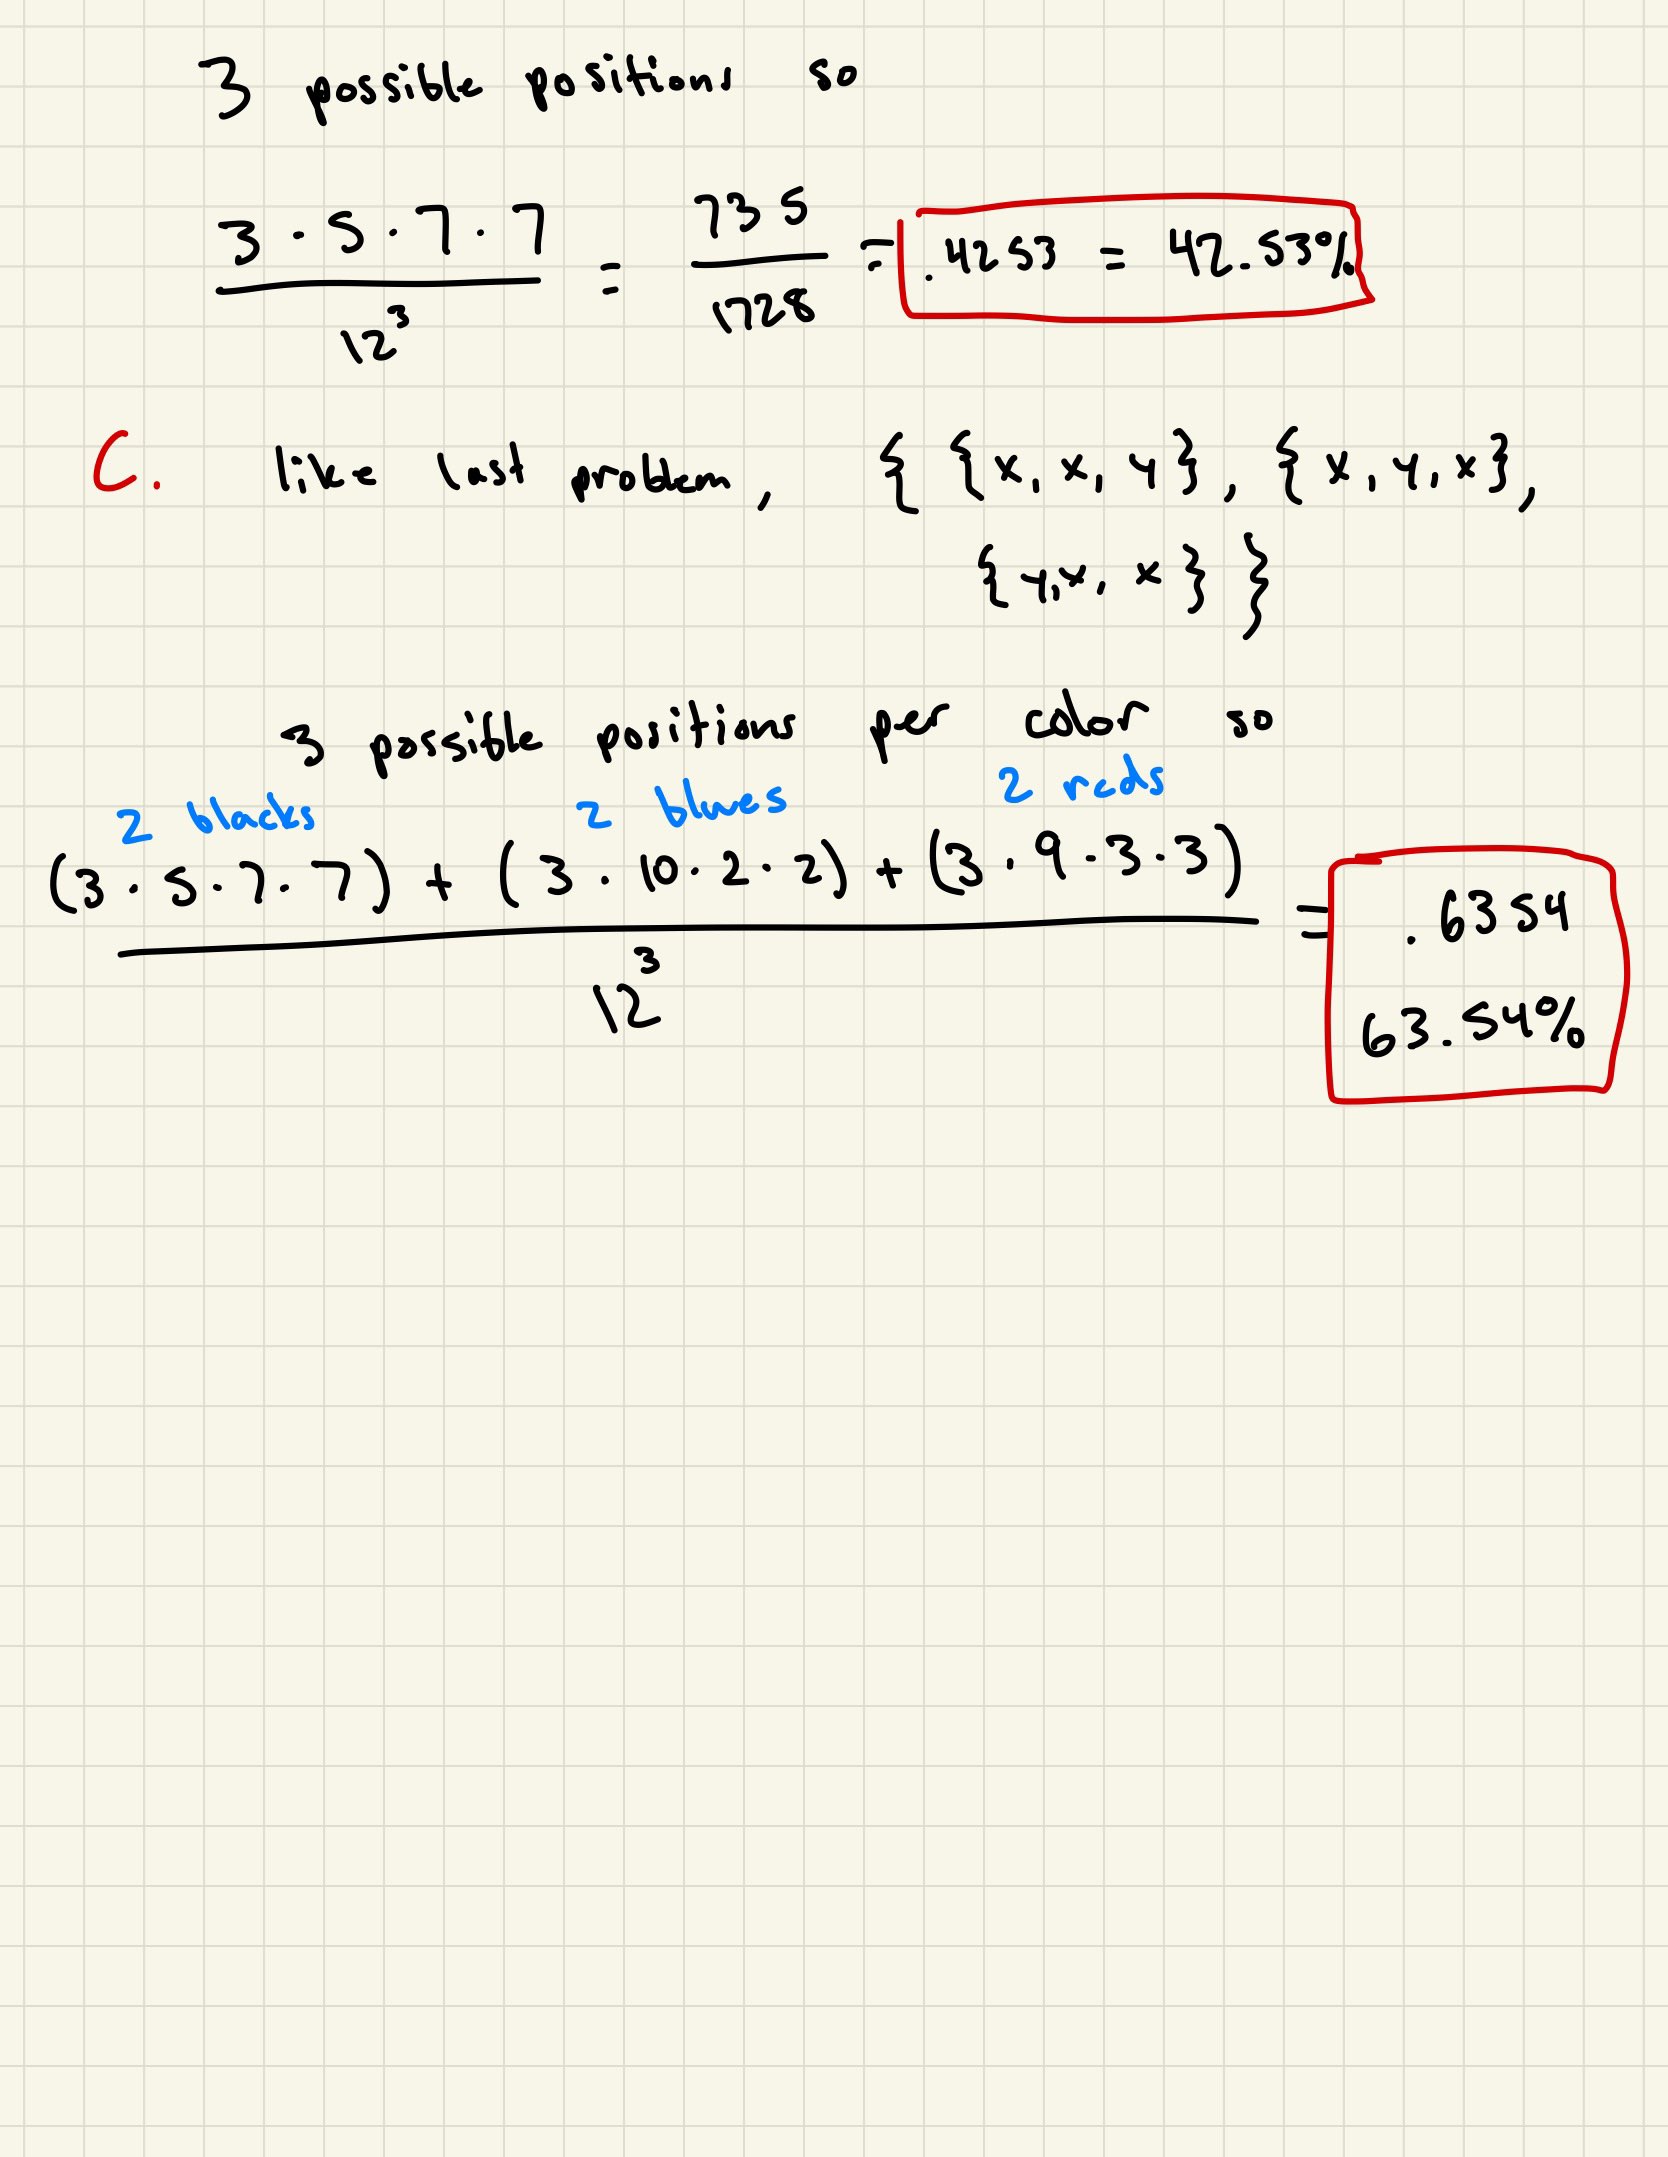 3 possible positions so
3 · 5 · 7 · 7 / 12³ = 735 / 1728 = .4253 = 42.53%
C. like last problem, { {x, x, y}, {x, y, x},
{y, x, x} }
3 possible positions per color so
2 blacks 2 blues 2 reds
(3 · 5 · 7 · 7) + (3 · 10 · 2 · 2) + (3 · 9 · 3 · 3) / 12³ = .6354
63.54%